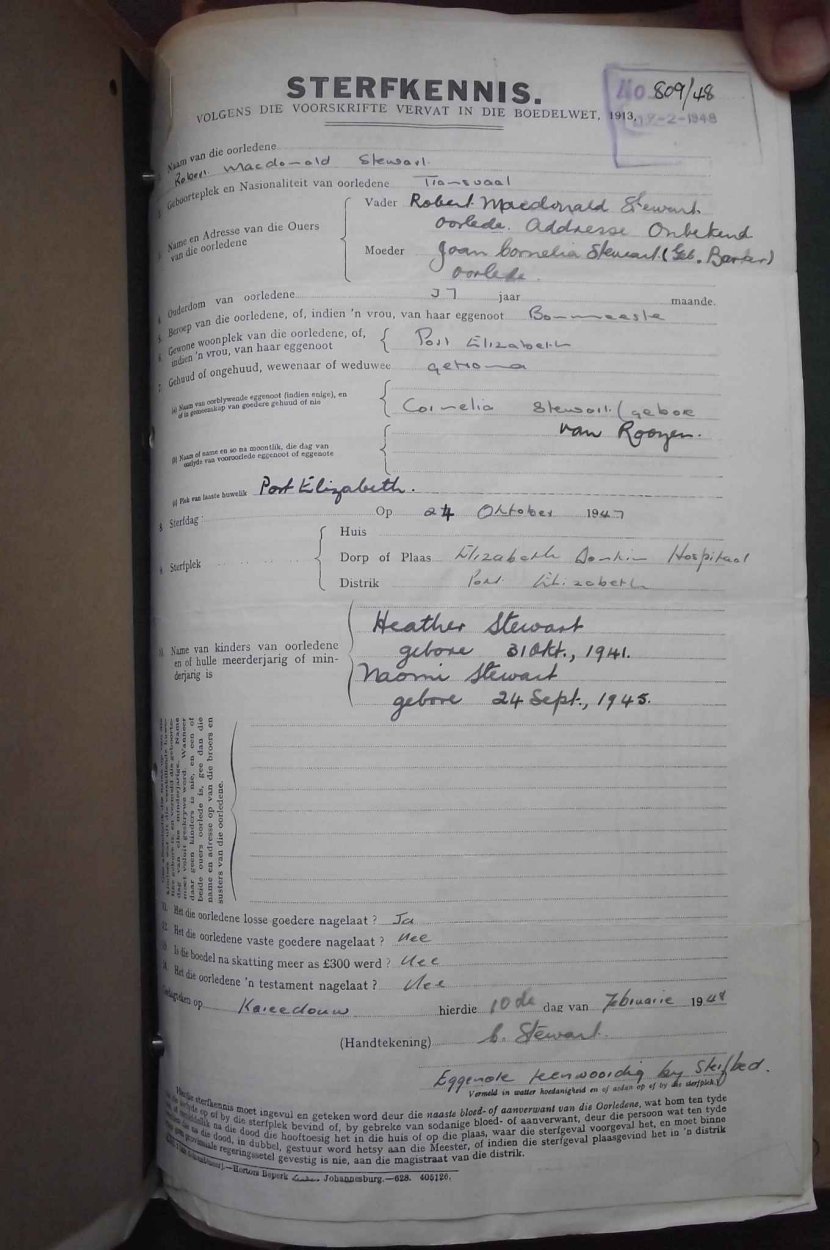 STERFKENNIS.
VOLGENS DIE VOORSKRIFTE VERVAT IN DIE BOEDELWET, 1913.
No 809/48
-2-1948
Naam van die oorledene
Robert Macdonald Stewart
Geboorteplek en Nasionaliteit van oorledene Transvaal
Name en Adresse van die Ouers van die oorledene
Vader Robert Macdonald Stewart.
oorlede. Addresse Onbekend
Moeder Joan Cornelia Stewart (Geb. Barker)
oorlede.
4. Ouderdom van oorledene 37 jaar maande.
5. Beroep van die oorledene, of, indien 'n vrou, van haar eggenoot
6. Gewone woonplek van die oorledene, of, indien 'n vrou, van haar eggenoot
Port Elizabeth
7. Gehuud of ongehuud, wewenaar of weduwee
(a) Naam van oorblywende eggenoot (indien enige), en of in gemeenskap van goedere gehuud of nie
Cornelia Stewart (gebore
van Rooyen.
(b) Naam of name en so na moontlik, die dag van oorlyde van vooroorlede eggenoot of eggenote
(c) Plek van laaste huwelik Port Elizabeth.
8. Sterfdag Op 24 Oktober 1947
9. Sterfplek
Huis
Dorp of Plaas Elizabeth Donkin Hospitaal
Distrik Port Elizabeth
10. Name van kinders van oorledene en of hulle meerderjarig of minderjarig is
Heather Stewart
gebore 31 Okt., 1941.
Naomi Stewart
gebore 24 Sept., 1945.
dag van elke minderjarige. Name
moet voluit geskrywe word. Wanneer
daar geen kinders is nie, en een of
beide ouers oorlede is, gee dan die
name en adresse op van die broers en
susters van die oorledene.
11. Het die oorledene losse goedere nagelaat? Ja
12. Het die oorledene vaste goedere nagelaat? Nee
13. Is die boedel na skatting meer as £300 werd? Nee
14. Het die oorledene 'n testament nagelaat? Nee
Gedagteken op Kareedouw hierdie 10de dag van Februarie 1948
(Handtekening) C. Stewart.
Eggenote teenwoordig by sterfbed.
Vermeld in watter hoedanigheid en of aldan op of by die sterfplek.)
Hierdie sterfkennis moet ingevul en geteken word deur die naaste bloed- of aanverwant van die Oorledene, wat hom ten tyde
op of by die sterfplek bevind of, by gebreke van sodanige bloed- of aanverwant, deur die persoon wat ten tyde
na die dood die hooftoesig het in die huis of op die plaas, waar die sterfgeval voorgeval het, en moet binne
die dood, in dubbel, gestuur word hetsy aan die Meester, of indien die sterfgeval plaasgevind het in 'n distrik
regeringssetel gevestig is nie, aan die magistraat van die distrik.
—Hortors Beperk Johannesburg.—628. 405126.